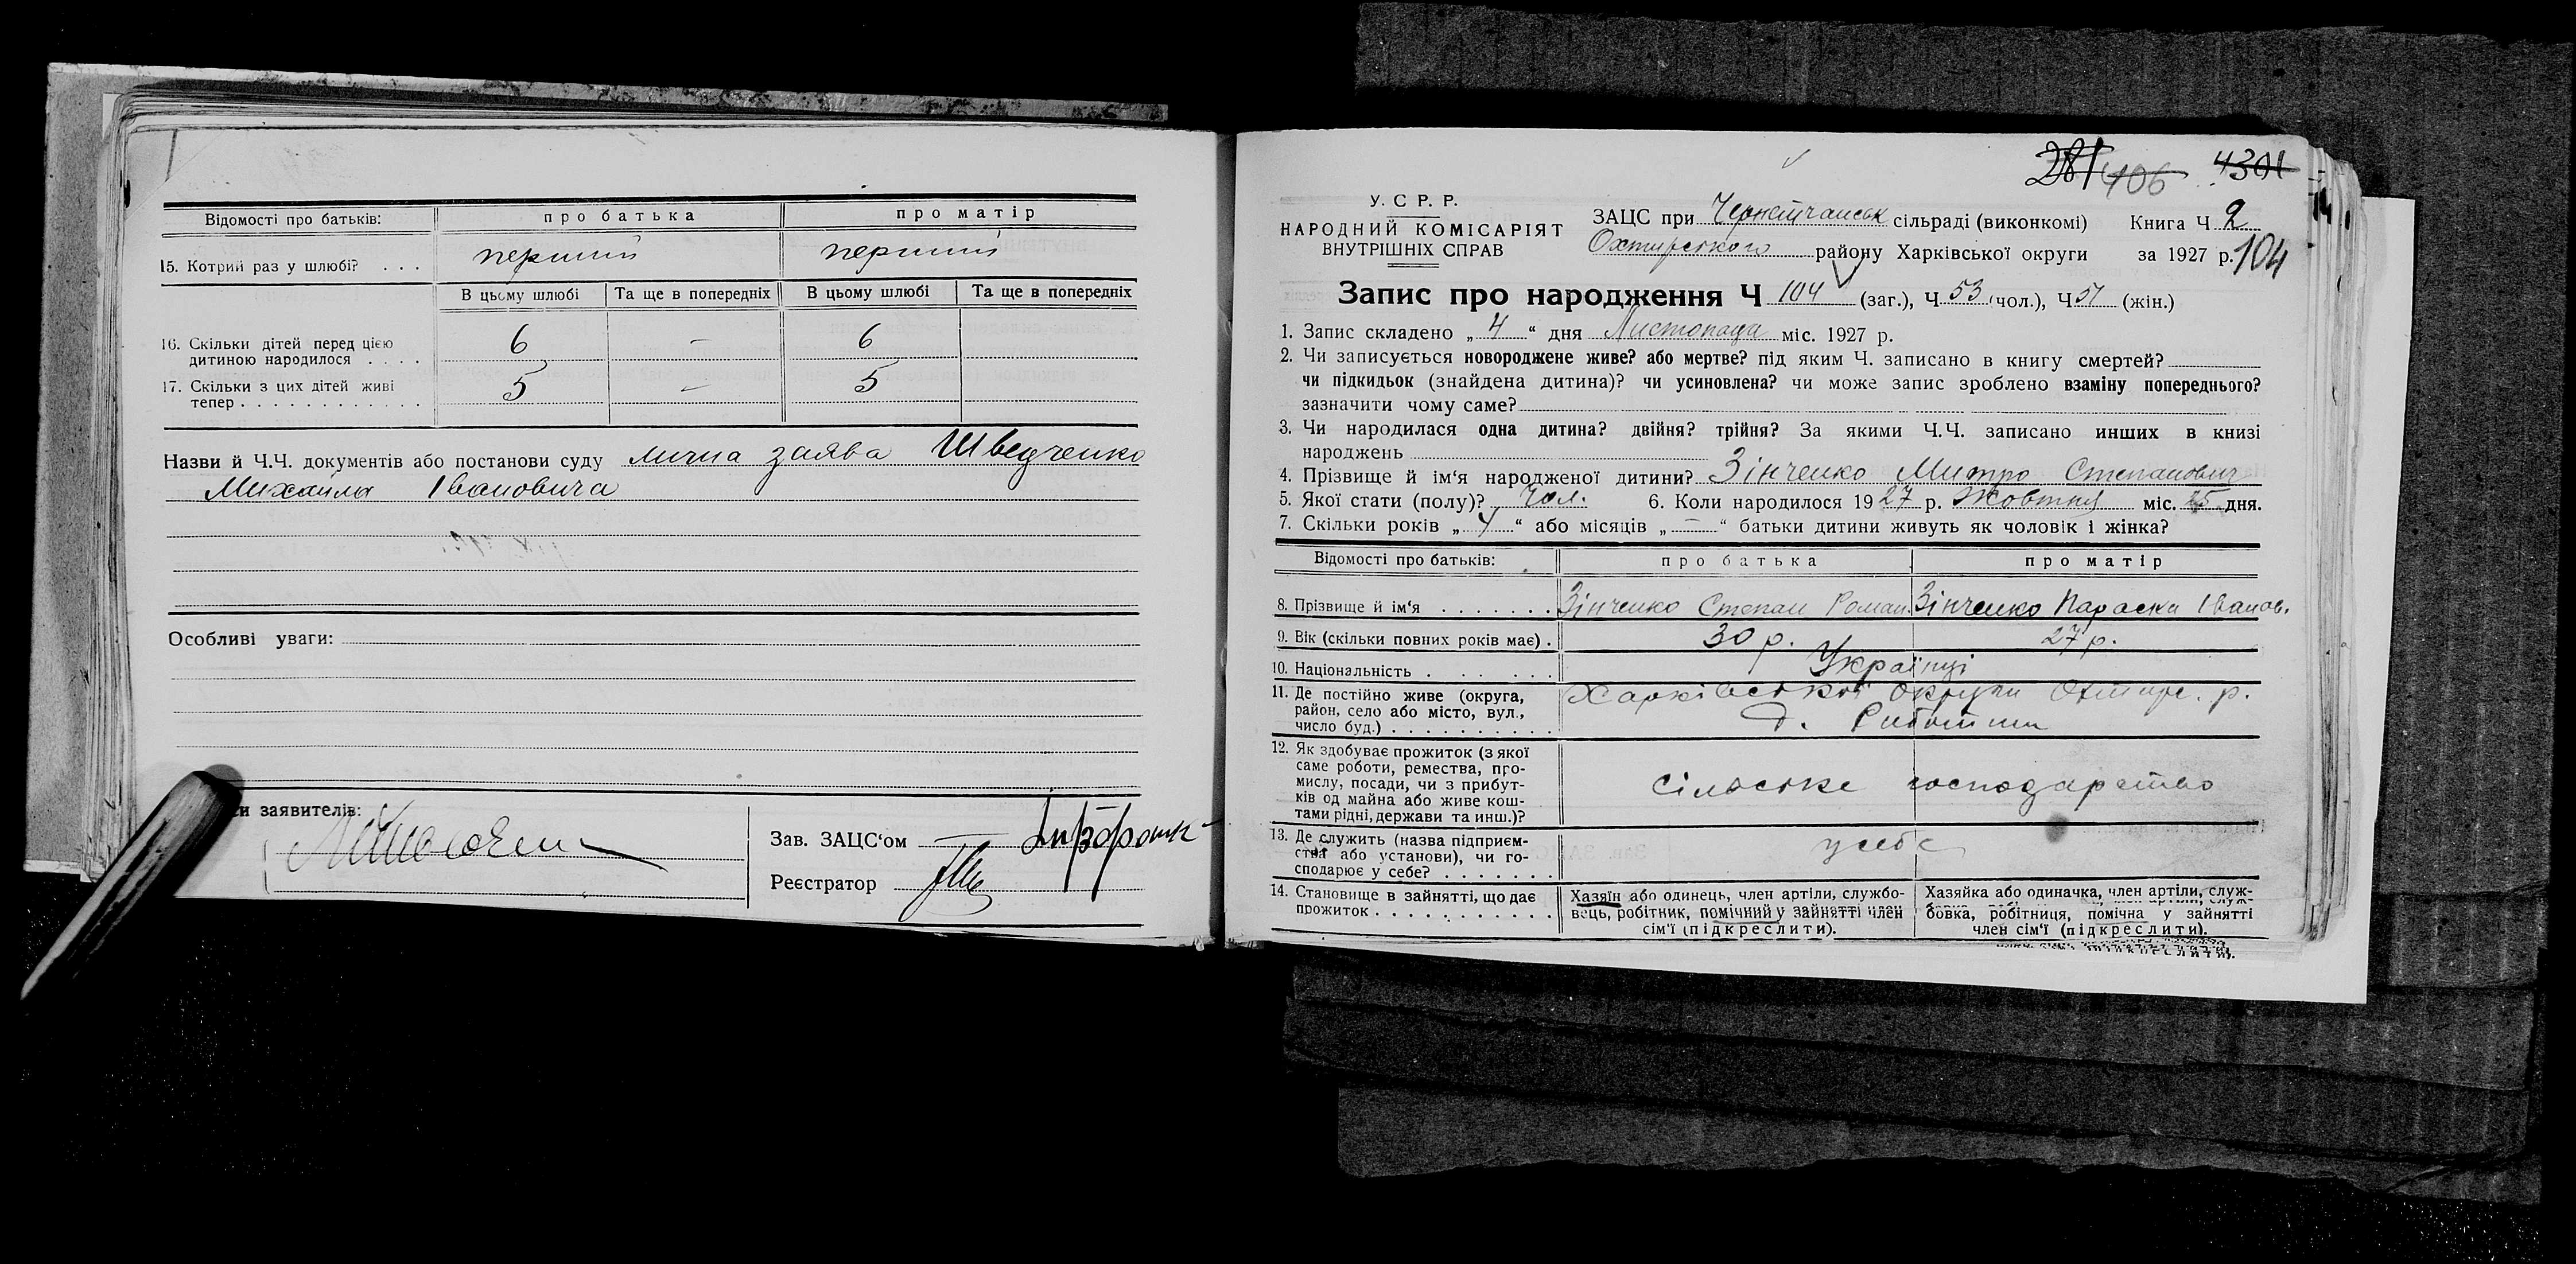 Відомості про батьків: про батька про матір
15. Котрий раз у шлюбі? . . . перший перший
В цьому шлюбі Та ще в попередніх В цьому шлюбі Та ще в попередніх
16. Скільки дітей перед цією
дитиною народилося . . . . 6 — 6
17. Скільки з цих дітей живі
тепер . . . . . . . . . . . . 5 — 5
Назви й Ч.Ч. документів або постанови суду лична заява Шведченко
Михайла Івановича
Особливі уваги:
и заявителів:
Зав. ЗАЦС'ом
Реєстратор
281 106 4301
У. С Р. Р.
НАРОДНИЙ КОМІСАРІЯТ
ВНУТРІШНІХ СПРАВ
ЗАЦС при Чернетчанськ сільраді (виконкомі) Книга Ч 2
Охтирського району Харківської округи за 1927 р. 104
Запис про народження Ч 104 (заг.), Ч 53 (чол.), Ч 51 (жін.)
1. Запис складено „ 4 “ дня Листопада міс. 1927 р.
2. Чи записується новороджене живе? або мертве? під яким Ч. записано в книгу смертей?
чи підкидьок (знайдена дитина)? чи усиновлена? чи може запис зроблено взаміну попереднього?
зазначити чому саме?
3. Чи народилася одна дитина? двійня? трійня? За якими Ч.Ч. записано инших в книзі
народжень
4. Прізвище й ім'я народженої дитини? Зінченко Митро Степанович
5. Якої стати (полу)? Чол. 6. Коли народилося 1927 р. Жовтня міс. 25 дня.
7. Скільки років „ 4 “ або місяців „ — “ батьки дитини живуть як чоловік і жінка?
Відомості про батьків: про батька про матір
8. Прізвище й ім'я . . . . . . . Зінченко Степан Роман. Зінченко Параска Іванов.
9. Вік (скільки повних років має) . 30 р. 27 р.
10. Національність . . . . . . . Українці
11. Де постійно живе (округа, Харківської округи Охтирс. р.
район, село або місто, вул.,
число буд.) . . . . . . . . . .
12. Як здобуває прожиток (з якої
саме роботи, ремества, про-
мислу, посади, чи з прибут-
ків од майна або живе кош-
тами рідні, держави та инш.)? сільське господарство
13. Де служить (назва підприєм-
ства або установи), чи го-
сподарює у себе? . . . . . . . у себе
14. Становище в зайнятті, що дає
прожиток . . . . . . . . . . .
Хазяїн або одинець, член артіли, службо-
вець, робітник, помічний у зайнятті член
сім'ї (підкреслити).
Хазяйка або одиначка, член артіли, служ-
бовка, робітниця, помічна у зайнятті
член сім'ї (підкреслити).